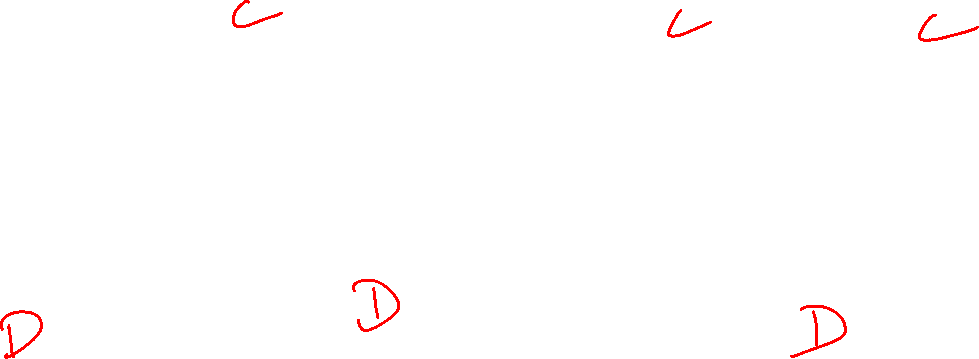 C C C
D D D